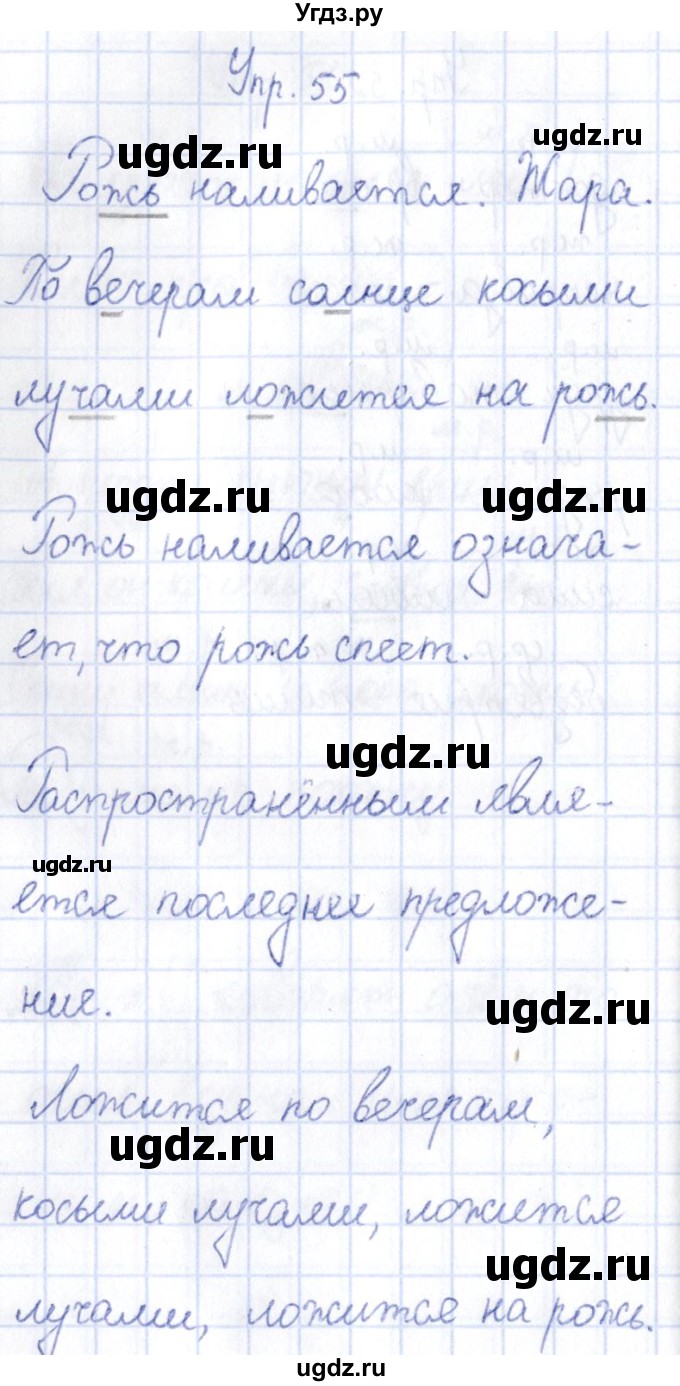 Угдз.ру
Упр. 55
ugdz.ru
ugdz.ru
Рожь наливается. Жара.
По вечерам солнце косыми
лучами ложится на рожь.
ugdz.ru
ugdz.ru
Рожь наливается означа-
ет, что рожь спеет.
ugdz.ru
Распространённым явля-
ugdz.ru
ется последнее предложе-
ние.
ugdz.ru
Ложится по вечерам,
ugdz.ru
косыми лучами, ложится
ugdz.ru
лучами, ложится на рожь.
ugdz.ru